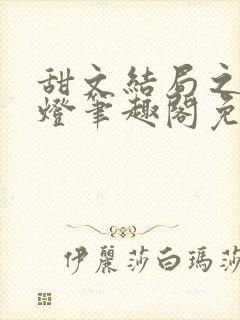 甜文結局之
燈筆趣閣免
伊麗莎白瑪莎